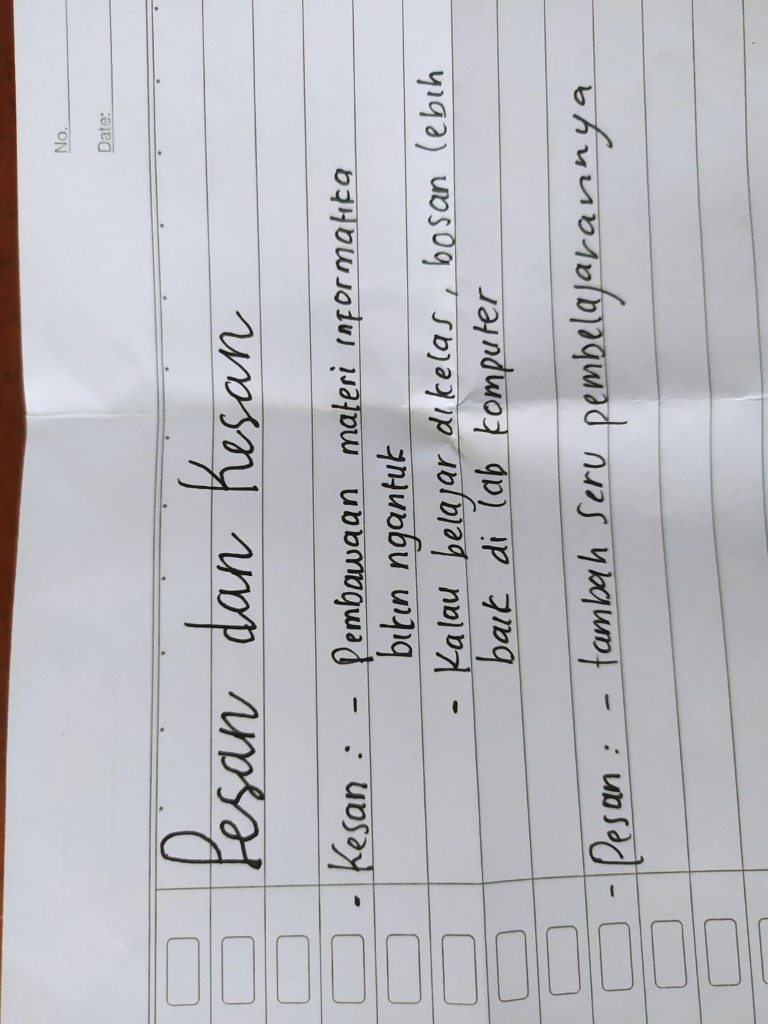 No.
Date:
Pesan dan Kesan
- Kesan : - Pembawaan materi informatika
bikin ngantuk
- Kalau belajar dikelas, bosan lebih
baik di lab komputer
- Pesan : - tambah seru pembelajarannnya